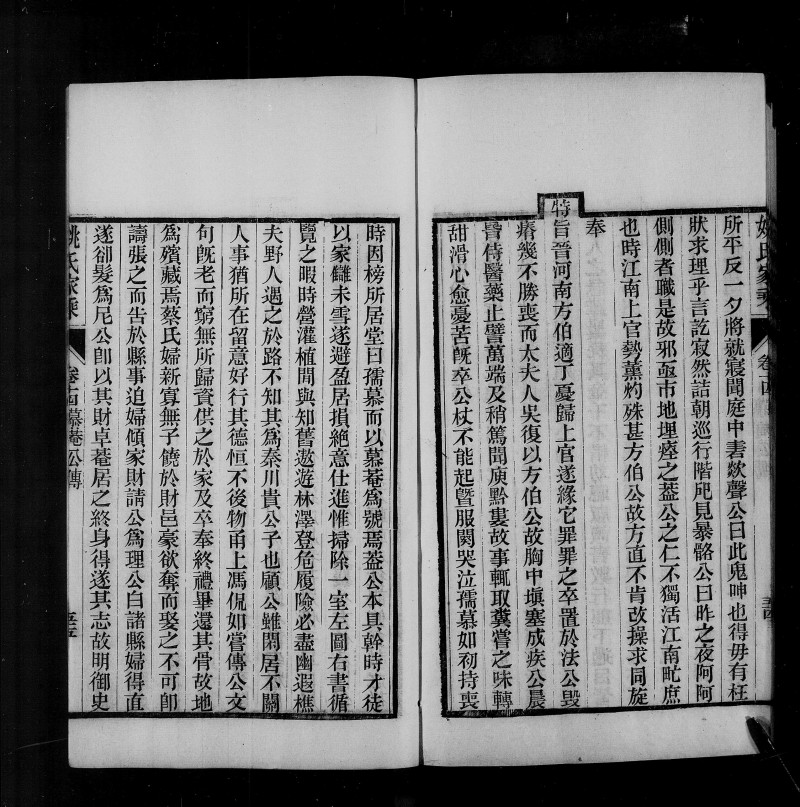 姚氏家乘
卷十四
所平反一夕將就寢聞庭中砉欻聲公曰此鬼呻也得毋有枉
狀求理乎言訖寂然詰朝巡行階戺見暴骼公曰昨之夜阿阿
側側者職是故邪亟市地埋瘞之葢公之仁不獨活江南甿庶
也時江南上官勢薰灼殊甚方伯公故方直不肯改操求同旋
奉
特旨晉河南方伯適丁憂歸上官遂緣它罪罪之卒置於法公毀
瘠幾不勝喪而太夫人吳復以方伯公故胸中塡塞成疾公晨
昏侍醫藥止譬萬端及稍篤聞庾黔婁故事輒取糞嘗之味轉
甜滑心愈憂苦旣卒公杖不能起曁服闋哭泣孺慕如初持喪
時因榜所居堂曰孺慕而以慕菴爲號焉葢公本具幹時才徒
以家讎未雪遂避盈居損絶意仕進惟掃除一室左圖右書循
覽之暇時營灌植間與知舊遨遊林澤登危履險必盡幽遐樵
夫野人遇之於路不知其爲秦川貴公子也顧公雖閑居不關
人事猶所在留意好行其德恒不後物甬上馮侃如嘗傳公文
句旣老而窮無所歸資供之於家及卒奉終禮畢還其骨故地
爲殯藏焉蔡氏婦新寡無子饒於財邑豪欲奪而娶之不可卽
譸張之而告於縣事迫婦傾家財請公爲理公白諸縣婦得直
遂卻髮爲尼公卽以其財卓菴居之終身得遂其志故明御史
姚氏家乘
卷十四慕菴公傳